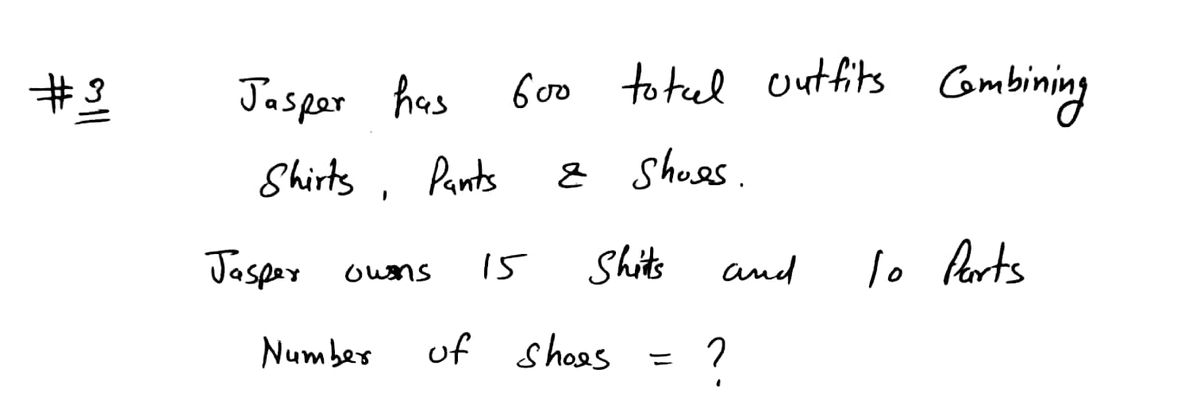 #3 Jasper has 600 total outfits Combining
Shirts, Pants & Shoes.
Jasper owns 15 Shits and 10 Parts
Number of shoes = ?